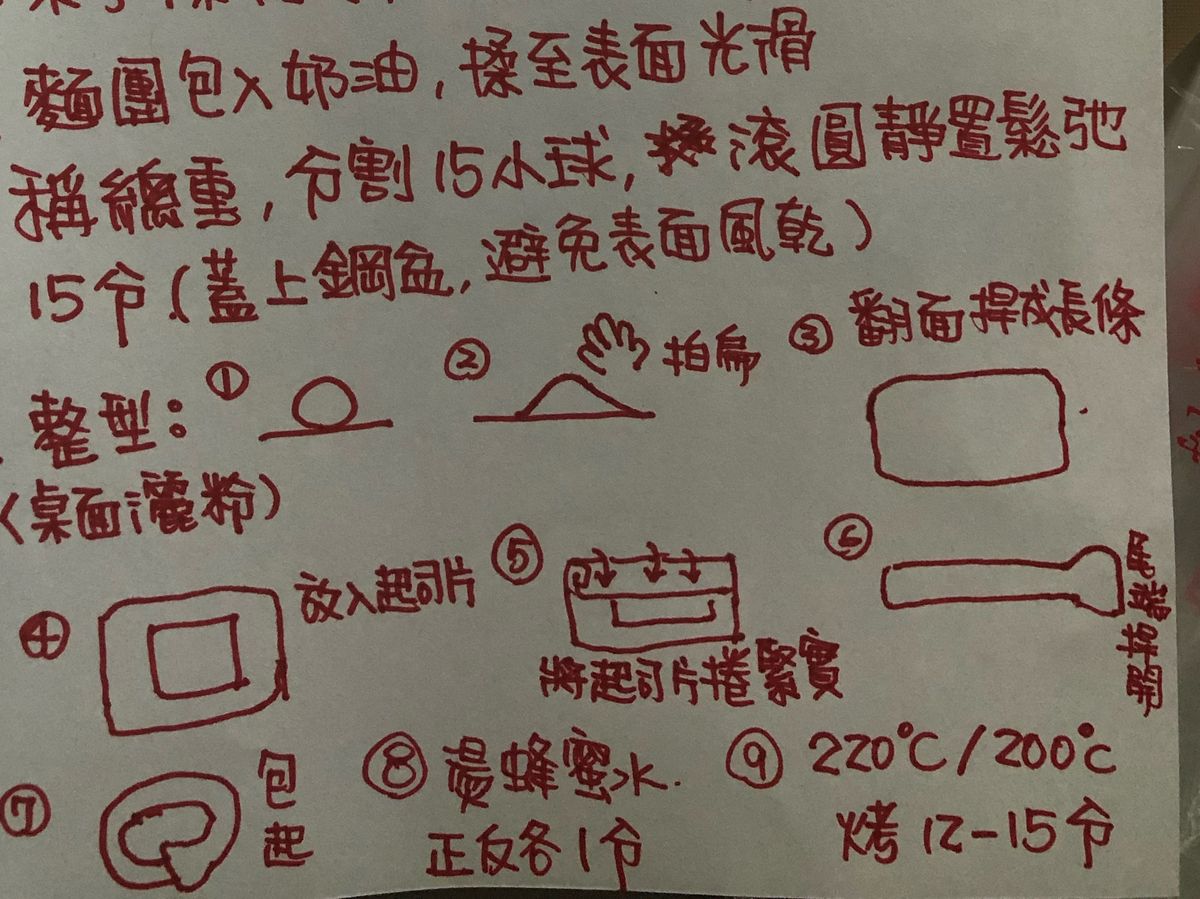 麵團包入奶油，揉至表面光滑
稱總重，分割15小球，滾圓靜置鬆弛
15分（蓋上鋼盆，避免表面風乾）
整型：
（桌面灑粉）
①
② 拍扁
③ 翻面捍成長條
④ 放入起司片
⑤
將起司片捲緊實
⑥
尾端捍開
⑦ 包起
⑧ 燙蜂蜜水.
正反各1分
⑨ 220℃/200℃
烤12-15分